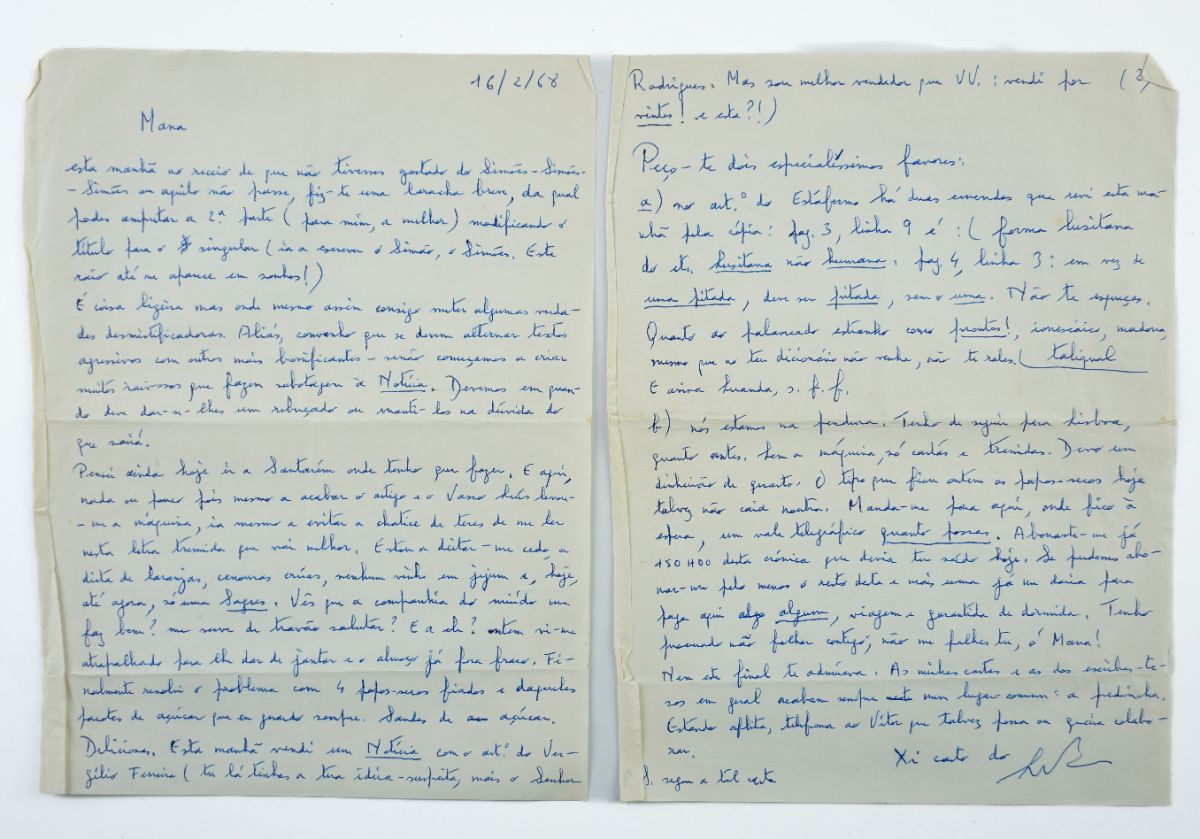 16/2/68
Mana
esta manhã no receio de que não tivesses gostado do Simões-Simões-
-Simões ou aquilo não passe, fiz-te uma laracha breve, da qual
podes amputar a 2.ª parte (para mim, a melhor) modificando o
título para o singular (ia a escrever o Simão, o Simões. Este
raio até me aparece em sonhos!)
É coisa ligeira mas onde mesmo assim consigo meter algumas verda-
des desmistificadoras. Aliás, convenho que se devem alternar textos
agressivos com outros mais bonificantes - senão começamos a criar
muitos raivosos que fazem sabotagem à Notícia. Devemos em quan-
do deve dar-se-lhes um rebuçado ou mantê-los na dúvida do
que sairá.
Pensei ainda hoje ir a Santarém onde tenho que fazer. E aqui,
nada ou pouco pois mesmo a acabar o artigo e o Vasco levou-
-me a máquina, ia mesmo a evitar a chatice de teres de me ler
nesta letra tremida que vai melhor. Estou a deitar-me cedo, a
dieta de laranjas, cenouras cruas, nenhum vinho em jejum e, hoje,
até agora, só uma Sagres. Vês que a companhia do miúdo me
faz bem? me serve de travão salutar? E a ele? ontem vi-me
atrapalhado para lhe dar de jantar e o almoço já fora fraco. Fi-
nalmente resolvi o problema com 4 papos-secos fiados e daqueles
pacotes de açúcar que eu guardo sempre. Sandes de açúcar.
Deliciosas. Esta manhã vendi um Notícia com o art.º do Ver-
gílio Ferreira (tu lá tinhas a tua idéia-suspeita, mais o Senhor
Rodrigues. Mas sou melhor vendedor que VV.: vendi por (2)
vintes! e esta?!)
Peço-te dois especialíssimos favores:
a) no art.º do Estafermo há duas emendas que revi esta ma-
nhã pela cópia: pag. 3, linha 9 é: (forma lusitana
do etc. lusitana não humana. pag. 4, linha 3: em vez de
uma pitada, deve ser pitada, sem o uma. Não te esqueças.
Quanto ao palavreado estranho como prontos!, ionescáico, madona,
mesmo que no teu dicionário não venha, não te rales. (taliqual
E assina Luanda, s. f. f.
b) nós estamos na pendura. Tenho de seguir para Lisboa,
quanto antes. Sem a máquina, só cartas e tremidas. Devo um
dinheirão de quarto. O tipo que fiou ontem os papos-secos hoje
talvez não caia noutra. Manda-me para aqui, onde fico à
espera, um vale telegráfico quanto possas. Abonaste-me já
150$00 desta crónica que devia ter saído hoje. Se pudesses abo-
nar-me pelo menos o resto desta e mais uma já me daria para
pagar aqui algum, viagem e garantida de dormida. Tenho
procurado não falhar contigo; não me falhes tu, ó Mana!
Nem este final te admirava. As minhas cartas e as dos escribas-te-
sos em geral acabam sempre num lugar-comum: a pedincha.
Estando aflita, telefona ao Vítor que talvez possa ou queira colabo-
rar.
Xi carto do
S. segue a tal carta